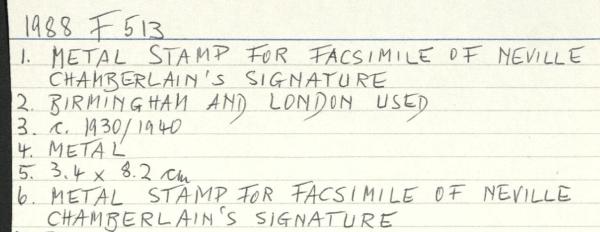 1988 F 513
1. METAL STAMP FOR FACSIMILE OF NEVILLE
CHAMBERLAIN'S SIGNATURE
2. BIRMINGHAM AND LONDON USED
3. c. 1930/1940
4. METAL
5. 3.4 x 8.2 cm
6. METAL STAMP FOR FACSIMILE OF NEVILLE
CHAMBERLAIN'S SIGNATURE